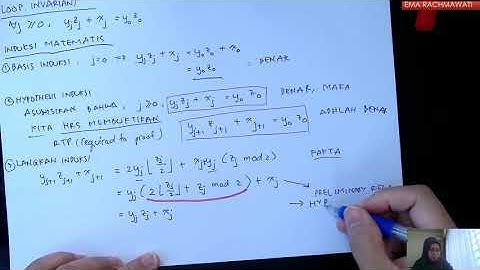 EMA RACHMAWATI
LOOP INVARIANT
∀j ≥ 0, y_j z_j + x_j = y_0 z_0
INDUKSI MATEMATIS
① BASIS INDUKSI, j=0 → y_j z_j + x_j = y_0 z_0 + x_0
= y_0 z_0 → BENAR
② HYPOTHESIS INDUKSI
ASUMSIKAN BAHWA, j ≥ 0, y_j z_j + x_j = y_0 z_0 BENAR, MAKA
KITA HRS MEMBUKTIKAN y_{j+1} z_{j+1} + x_{j+1} = y_0 z_0 ADALAH BENAR
RTP (required to proof)
③ LANGKAH INDUKSI
y_{j+1} z_{j+1} + x_{j+1} = 2y_j ⌊z_j/2⌋ + x_j + y_j (z_j mod 2) FAKTA
= y_j (2⌊z_j/2⌋ + z_j mod 2) + x_j → PRELIMINARY
= y_j z_j + x_j → HYP